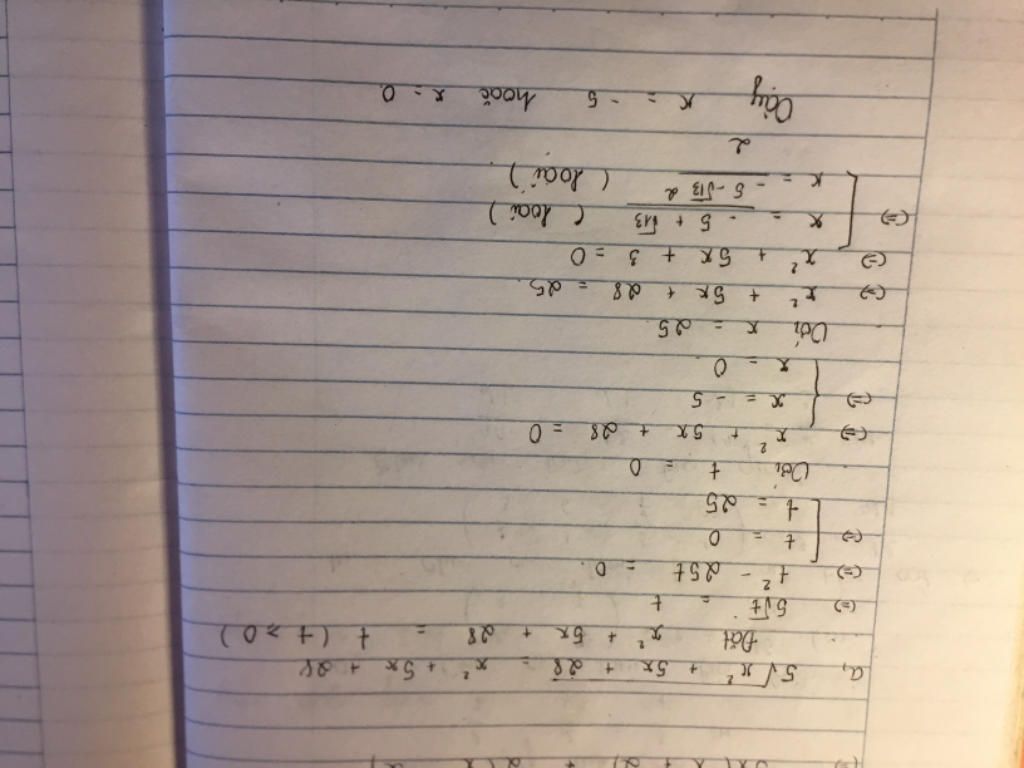 a, 5√(x² + 5x + 28) = x² + 5x + 28
Đặt x² + 5x + 28 = t (t ≥ 0)
(=) 5√t = t
(=) t² - 25t = 0
(=) [ t = 0
t = 25
Với t = 0
(=) x² + 5x + 28 = 0
(=) { x = -5
x = 0
Với x = 25
(=) x² + 5x + 28 = 25
(=) x² + 5x + 3 = 0
(=) [ x = (-5 + √13)/2 (loại)
x = (-5 - √13)/2 (loại)
Vậy x = -5 hoặc x = 0